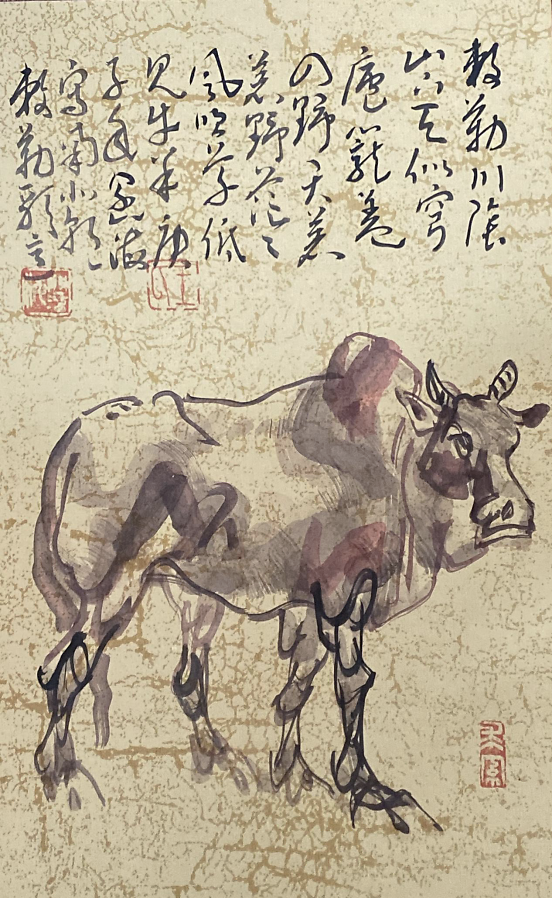 敕勒川陰
山下天似穹
廬籠蓋
四野天蒼
蒼野茫〻
風吹草低
見牛羊庚
子年
寫南北朝
敕勒歌意